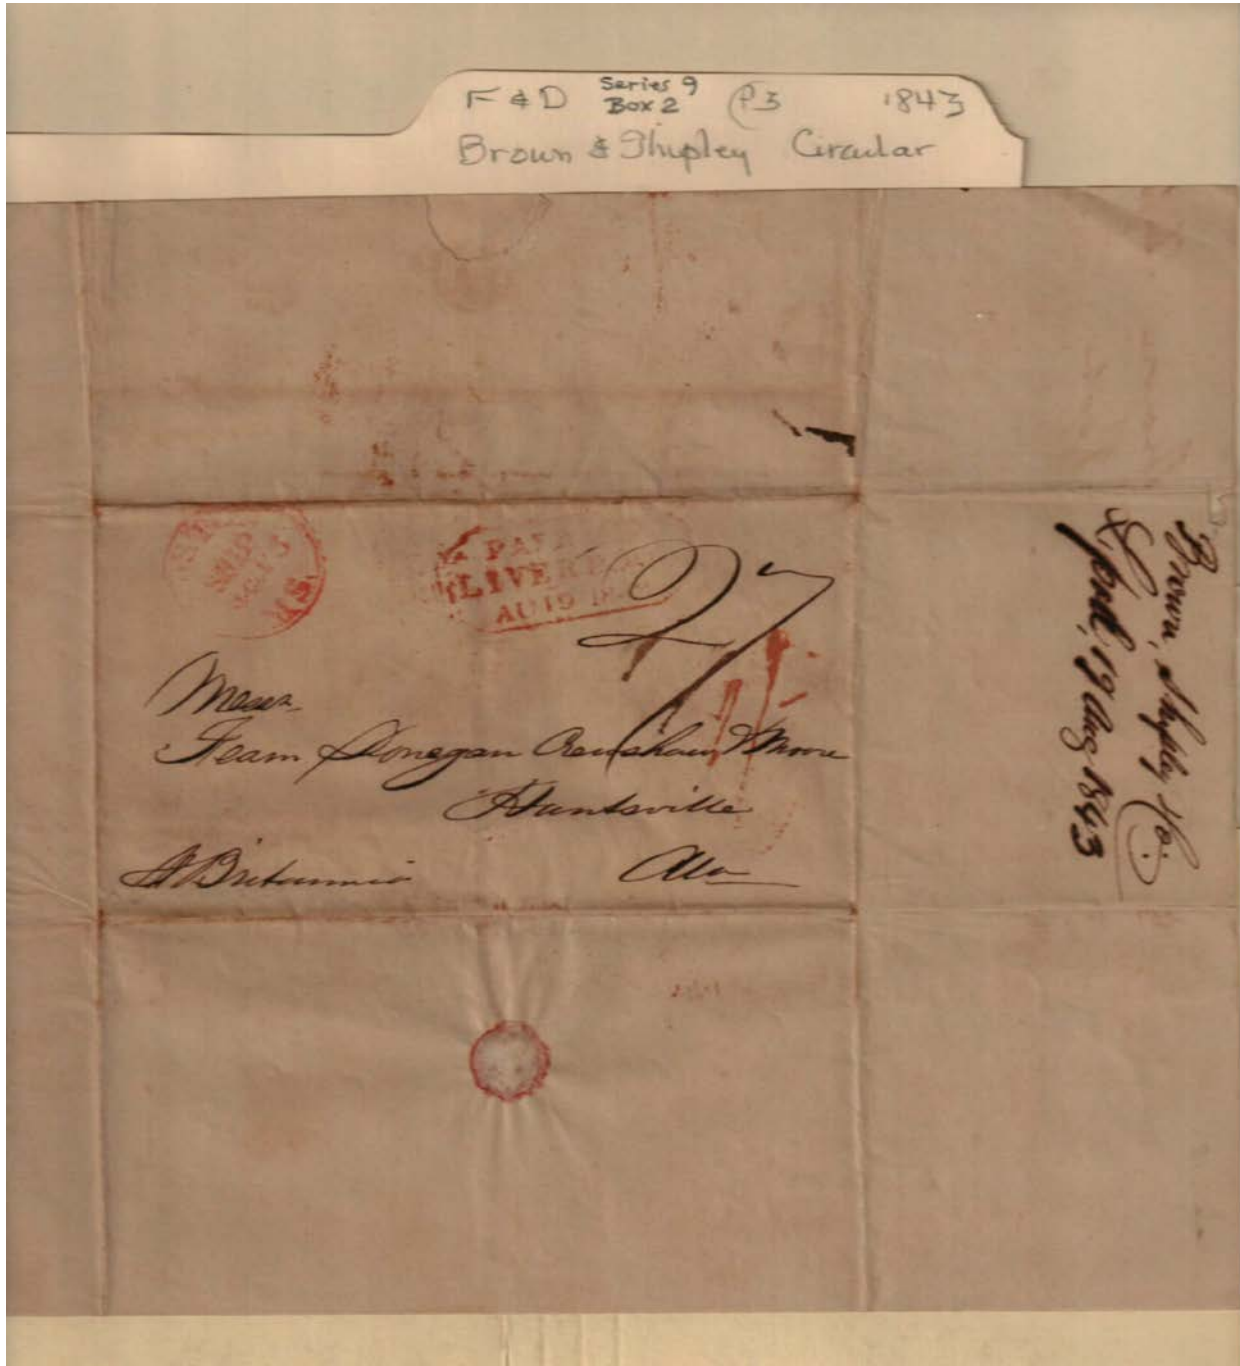 F & D Series 9 Box 2 P3 1843
Brown & Shipley Circular
PAID
LIVERPO
AU 19 18
SHIP
MS.
27
1/-
Messrs
Fearn Donegan Crenshaw & Moore
Huntsville
Ala
Pr Britannia
Brown, Shipley & Co.
L'pool, 19 Aug 1843